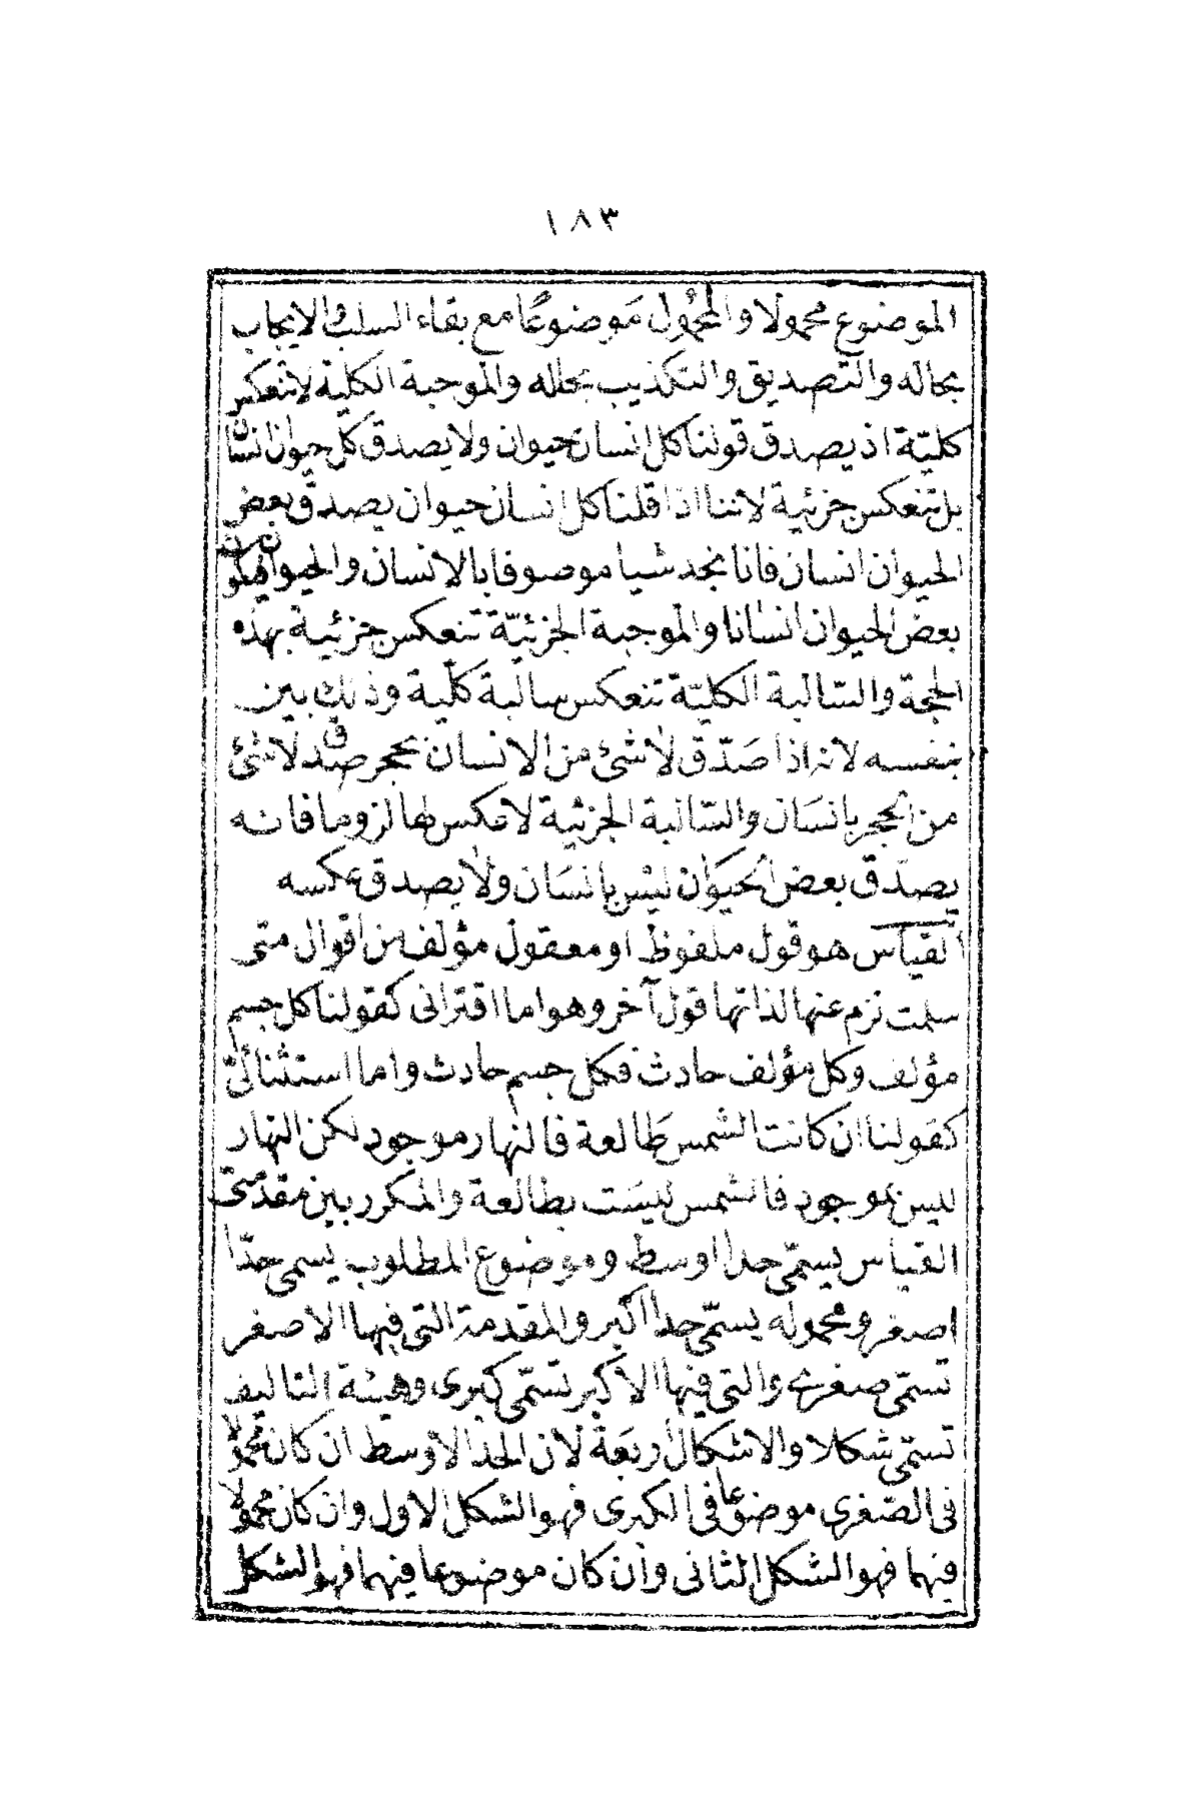 ١٨٣
الموضوع محمولا والمحمول موضوعا مع بقاء السلب والايجاب
بحاله والتصديق والتكذيب بحاله والموجبة الكلية لا تنعكس
كليّة اذ يصدق قولنا كل انسان حيوان ولا يصدق كل حيوان انسان
بل تنعكس جزئية لاننا اذا قلنا كل انسان حيوان يصدق بعض
الحيوان انسان فانا نجد شيا موصوفا بالانسان والحيوان فيكون
بعض الحيوان انسانا والموجبة الجزئيّة تنعكس جزئية بهذه
الحجة والسّالبة الكليّة تنعكس سالبة كلّية وذلك بين
بنفسه لانه اذا صَدّق لا شئ من الانسان بحجر صدق لا شئ
من الحجر بانسَان والسّالبة الجزئية لا عكس لها لزوما فانه
يصدّق بعض الحيوَان ليسْ بانسَان ولا يصدق عكسه
القياس هو قول ملفوظ او معقول مؤلف من اقوال متى
سلمت لزم عنها لذاتها قول آخر وهو اما اقترانى كقولنا كل جسم
مؤلف وكل مؤلف حادث فكل جسم حادث واما استثنائى
كقولنا ان كانت الشمس طالعة فالنهار موجود لكن النهار
ليس بموجود فالشمس ليسَت بطالعة والمكرر بين مقدمتى
القياس يسمّى حدا اوسط وموضوع المطلوب يسمى حدّا
اصغر ومحموله يسمّى حدا اكبر والمقدمة التى فيها الاصغر
تسمّى صغرى والتى فيها الاكبر تسمّى كبرى وهيئة التاليف
تسمّى شكلا والاشكال اربعَة لان الحد الاوسط ان كان محمولا
فى الصّغرى موضوعا فى الكبرى فهو الشكل الاول وان كان محمولا
فيهما فهو الشكل الثانى وان كان موضوعا فيهما فهو الشكل